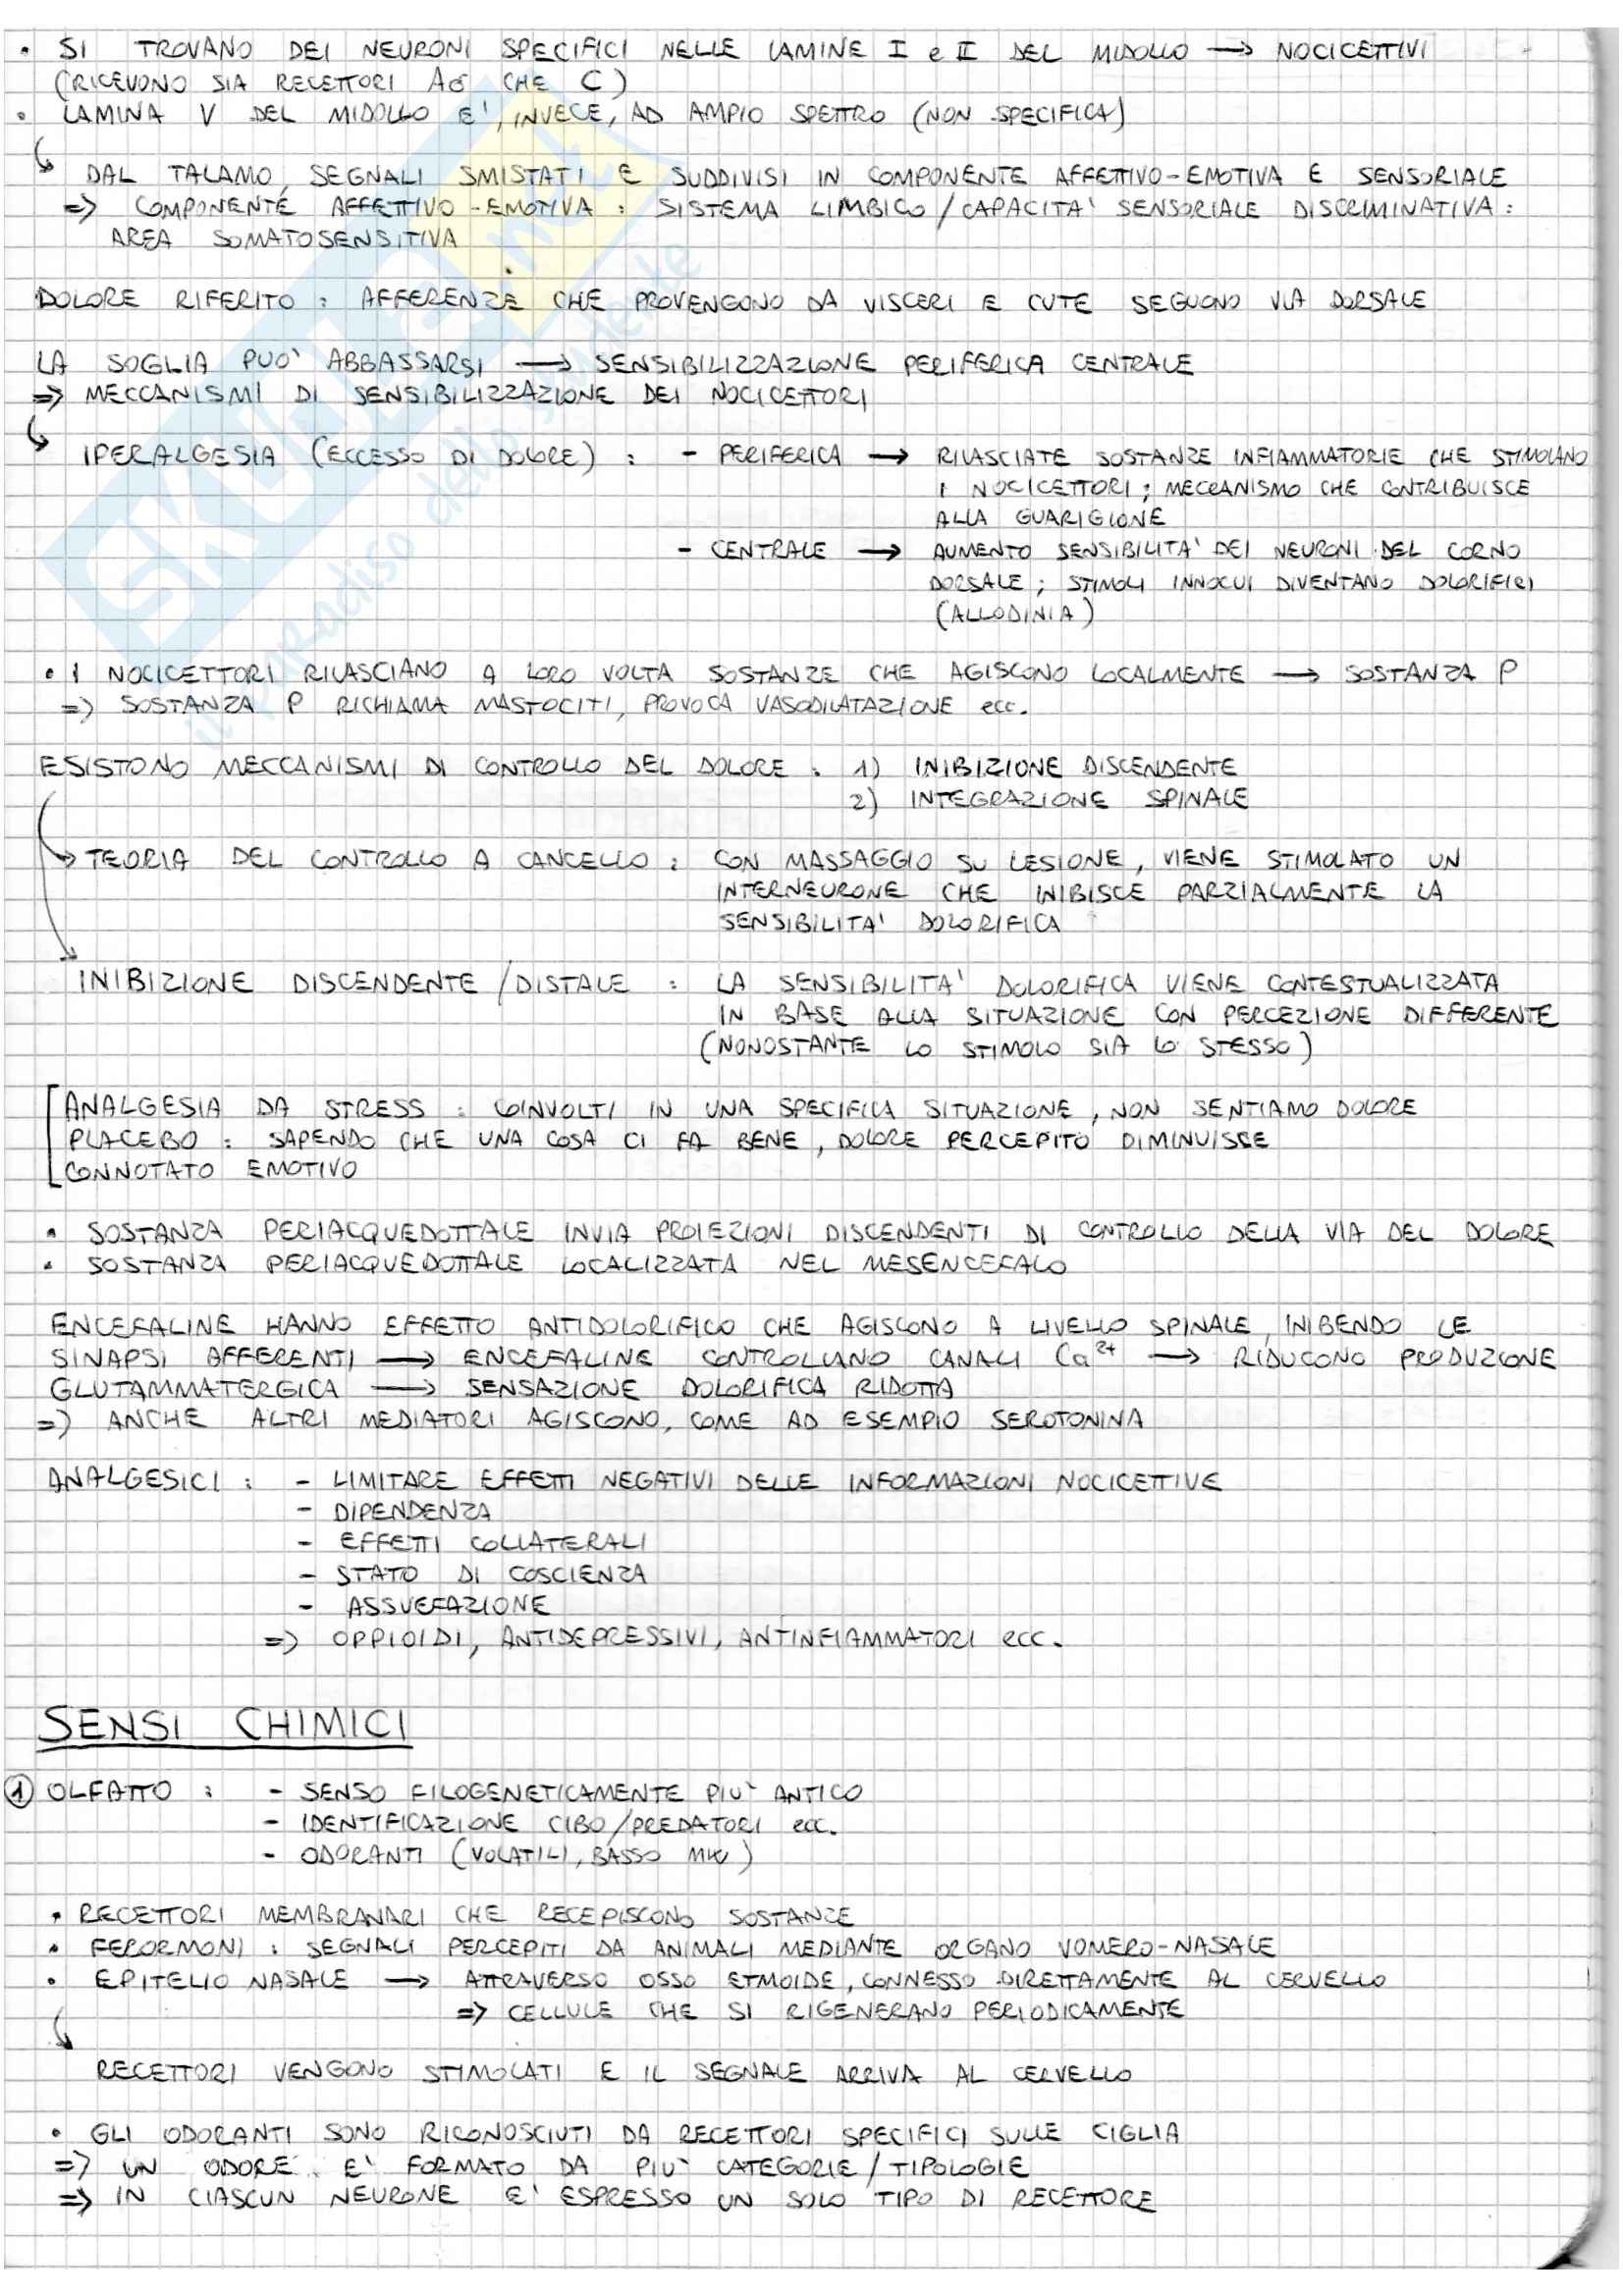 • SI TROVANO DEI NEURONI SPECIFICI NELLE LAMINE I e II DEL MIDOLLO → NOCICETTIVI
(RICEVONO SIA RECETTORI Aσ CHE C)
• LAMINA V DEL MIDOLLO E', INVECE, AD AMPIO SPETTRO (NON SPECIFICA)
↳ DAL TALAMO, SEGNALI SMISTATI E SUDDIVISI IN COMPONENTE AFFETTIVO-EMOTIVA E SENSORIALE
=> COMPONENTE AFFETTIVO-EMOTIVA : SISTEMA LIMBICO/CAPACITA' SENSORIALE DISCRIMINATIVA :
AREA SOMATOSENSITIVA
DOLORE RIFERITO : AFFERENZE CHE PROVENGONO DA VISCERI E CUTE SEGUONO VIA DORSALE
LA SOGLIA PUO' ABBASSARSI → SENSIBILIZZAZIONE PERIFERICA CENTRALE
=> MECCANISMI DI SENSIBILIZZAZIONE DEI NOCICETTORI
↳ IPERALGESIA (ECCESSO DI DOLORE) : - PERIFERICA → RILASCIATE SOSTANZE INFIAMMATORIE CHE STIMOLANO
I NOCICETTORI ; MECCANISMO CHE CONTRIBUISCE
ALLA GUARIGIONE
- CENTRALE → AUMENTO SENSIBILITA' DEI NEURONI DEL CORNO
DORSALE ; STIMOLI INNOCUI DIVENTANO DOLORIFICI
(ALLODINIA)
• I NOCICETTORI RILASCIANO A LORO VOLTA SOSTANZE CHE AGISCONO LOCALMENTE → SOSTANZA P
=> SOSTANZA P RICHIAMA MASTOCITI, PROVOCA VASODILATAZIONE ecc.
ESISTONO MECCANISMI DI CONTROLLO DEL DOLORE : 1) INIBIZIONE DISCENDENTE
2) INTEGRAZIONE SPINALE
→ TEORIA DEL CONTROLLO A CANCELLO : CON MASSAGGIO SU LESIONE, VIENE STIMOLATO UN
INTERNEURONE CHE INIBISCE PARZIALMENTE LA
SENSIBILITA' DOLORIFICA
INIBIZIONE DISCENDENTE/DISTALE : LA SENSIBILITA' DOLORIFICA VIENE CONTESTUALIZZATA
IN BASE ALLA SITUAZIONE CON PERCEZIONE DIFFERENTE
(NONOSTANTE LO STIMOLO SIA LO STESSO)
ANALGESIA DA STRESS : COINVOLTI IN UNA SPECIFICA SITUAZIONE, NON SENTIAMO DOLORE
PLACEBO : SAPENDO CHE UNA COSA CI FA BENE, DOLORE PERCEPITO DIMINUISCE
CONNOTATO EMOTIVO
• SOSTANZA PERIACQUEDOTTALE INVIA PROIEZIONI DISCENDENTI DI CONTROLLO DELLA VIA DEL DOLORE
• SOSTANZA PERIACQUEDOTTALE LOCALIZZATA NEL MESENCEFALO
ENCEFALINE HANNO EFFETTO ANTIDOLORIFICO CHE AGISCONO A LIVELLO SPINALE, INIBENDO LE
SINAPSI AFFERENTI → ENCEFALINE CONTROLLANO CANALI Ca²⁺ → RIDUCONO PRODUZIONE
GLUTAMMATERGICA → SENSAZIONE DOLORIFICA RIDOTTA
=> ANCHE ALTRI MEDIATORI AGISCONO, COME AD ESEMPIO SEROTONINA
ANALGESICI : - LIMITARE EFFETTI NEGATIVI DELLE INFORMAZIONI NOCICETTIVE
- DIPENDENZA
- EFFETTI COLLATERALI
- STATO DI COSCIENZA
- ASSUEFAZIONE
=> OPPIOIDI, ANTIDEPRESSIVI, ANTINFIAMMATORI ecc.
SENSI CHIMICI
① OLFATTO : - SENSO FILOGENETICAMENTE PIU' ANTICO
- IDENTIFICAZIONE CIBO/PREDATORI ecc.
- ODORANTI (VOLATILI, BASSO MW)
• RECETTORI MEMBRANARI CHE RECEPISCONO SOSTANZE
• FERORMONI : SEGNALI PERCEPITI DA ANIMALI MEDIANTE ORGANO VOMERO-NASALE
• EPITELIO NASALE → ATTRAVERSO OSSO ETMOIDE, CONNESSO DIRETTAMENTE AL CERVELLO
=> CELLULE CHE SI RIGENERANO PERIODICAMENTE
RECETTORI VENGONO STIMOLATI E IL SEGNALE ARRIVA AL CERVELLO
• GLI ODORANTI SONO RICONOSCIUTI DA RECETTORI SPECIFICI SULLE CIGLIA
=> UN ODORE E' FORMATO DA PIU' CATEGORIE/TIPOLOGIE
=> IN CIASCUN NEURONE E' ESPRESSO UN SOLO TIPO DI RECETTORE
SKUOLA.net
il paradiso dello studente